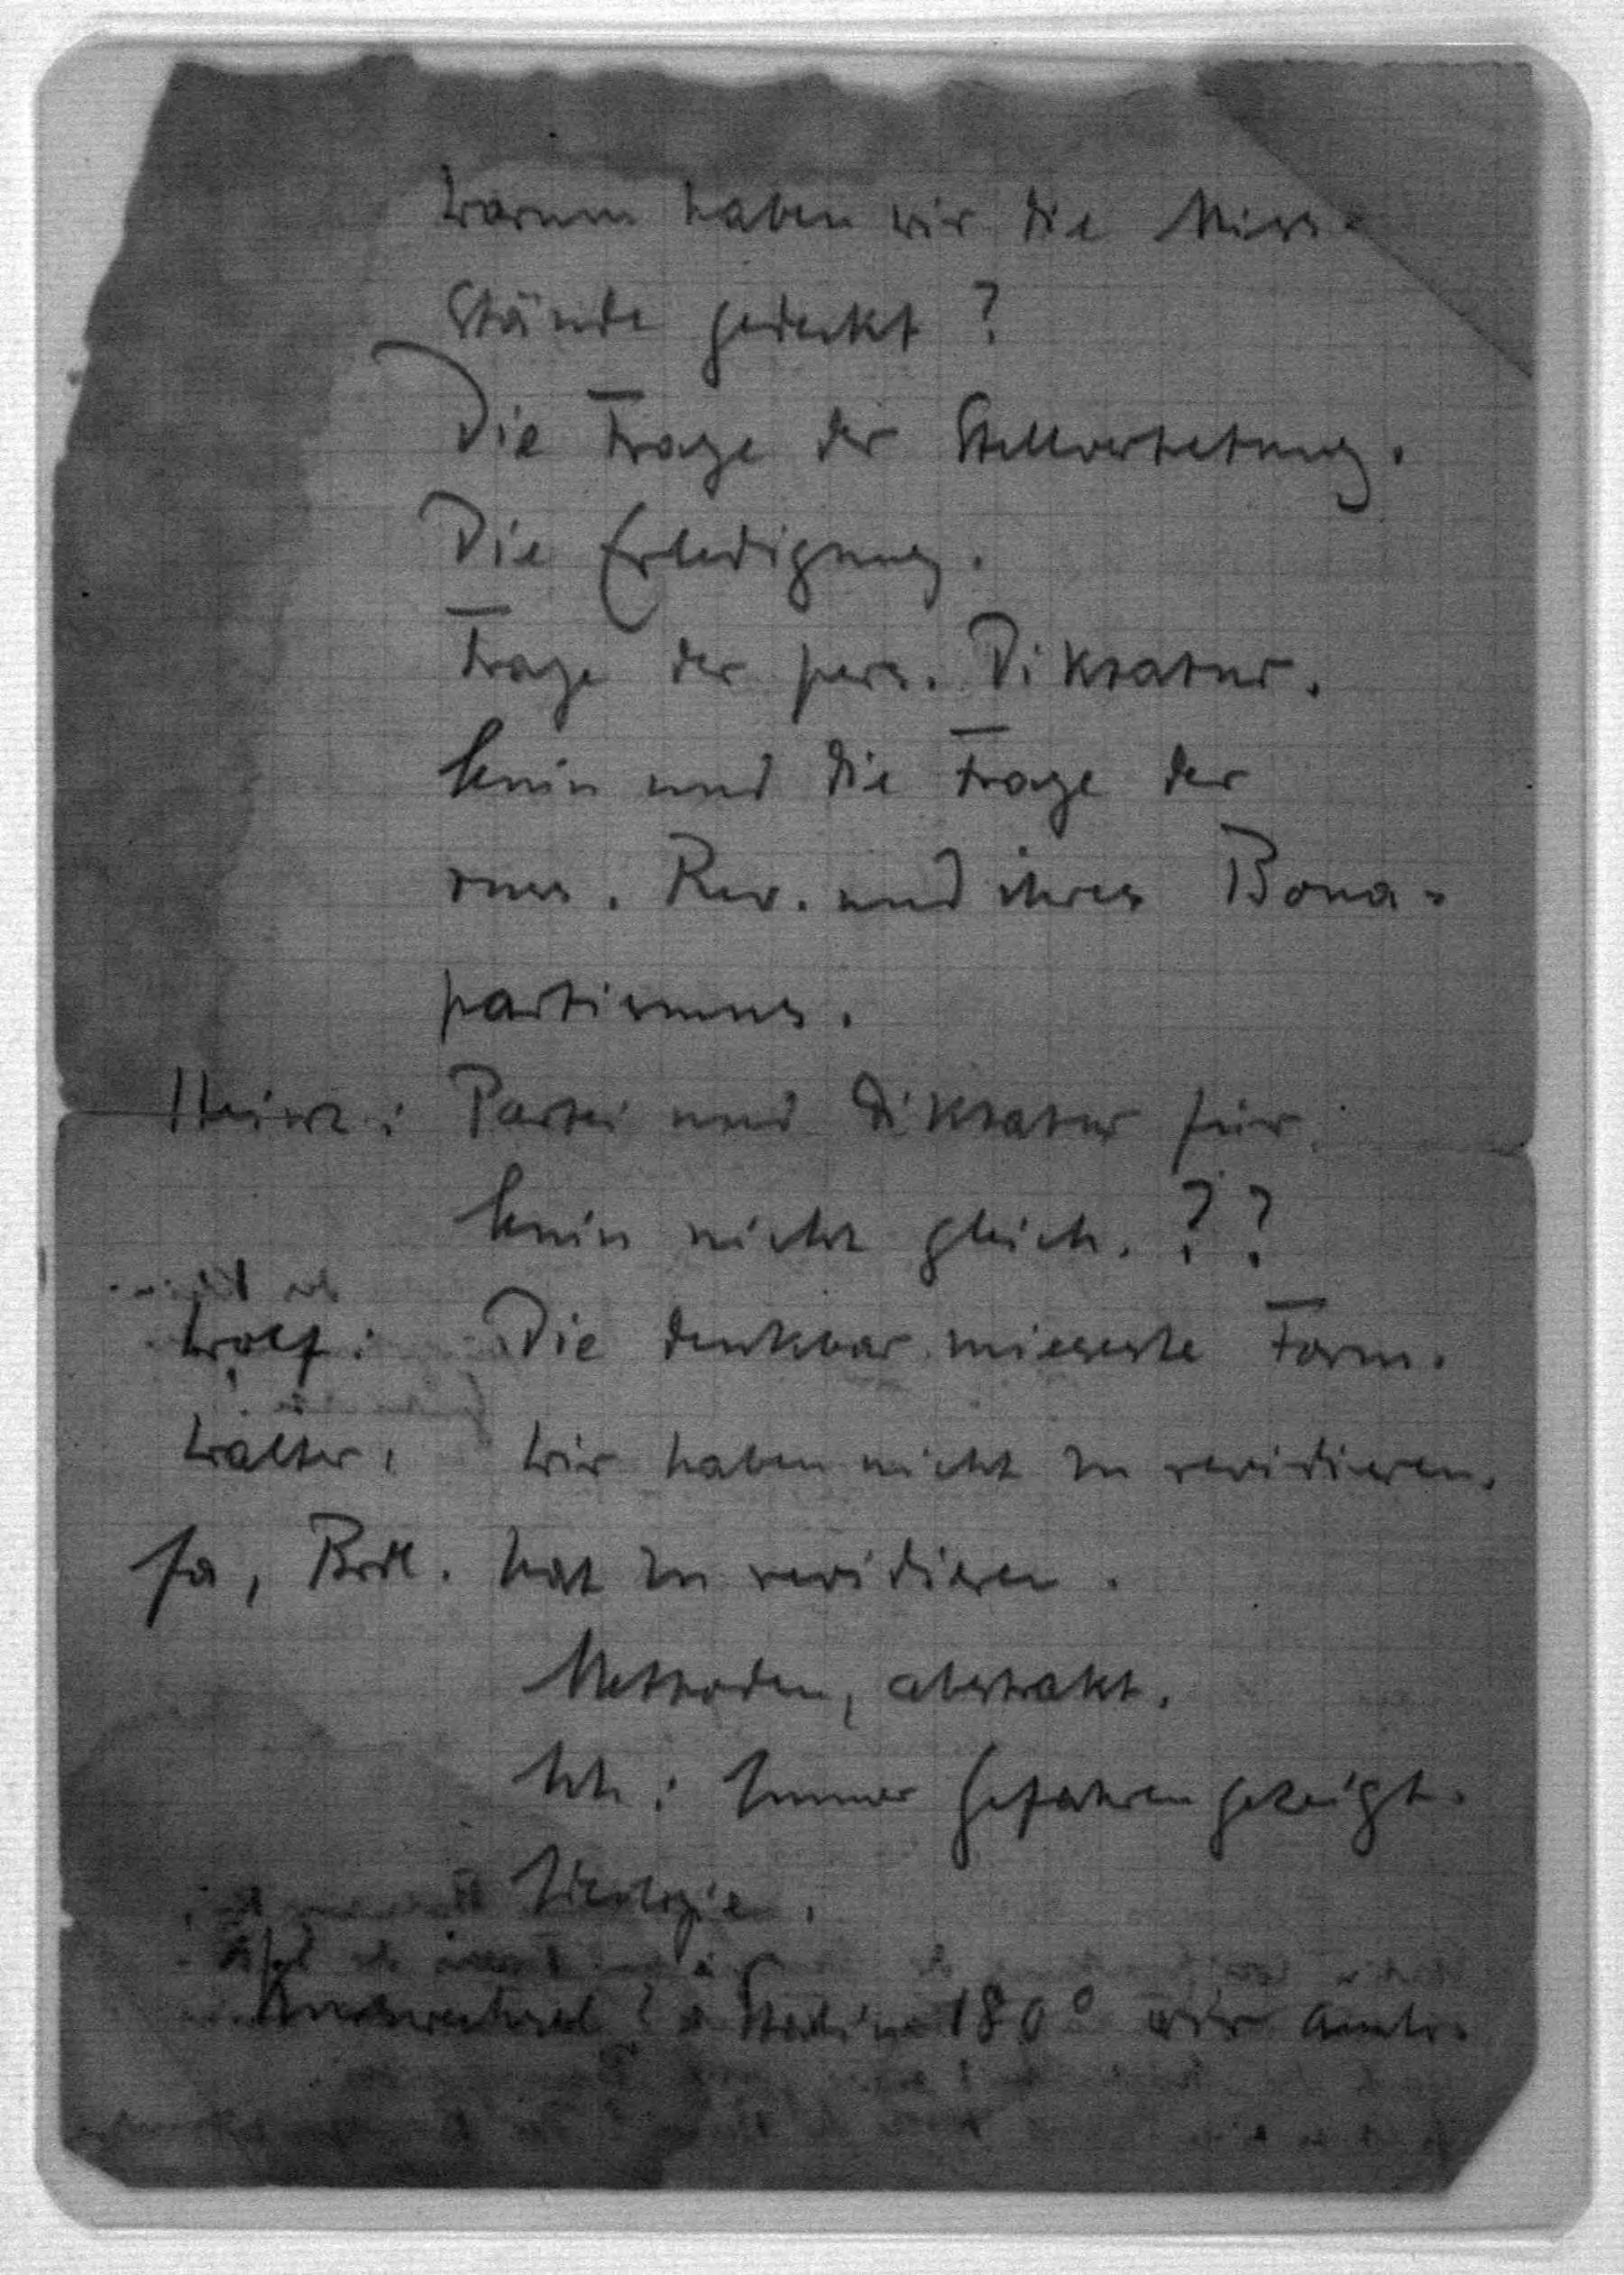 Warum haben wir die Miss-
stände gedeckt?
Die Frage der Stellvertretung.
Die Erledigung.
Frage der pers. Diktatur.
Lenin und die Frage der
russ. Rev. und ihres Bona-
partismus.
Heinz: Partei und Diktatur für
Lenin nicht gleich. ??
Wolf: Die denkbar mieseste Form.
Walter: Wir haben nicht zu revidieren.
Ja, Brdl. hat zu revidieren.
Methoden, abstrakt.
Immer Gefahren gezeigt.
Ideologie.
Stalin 180° wir